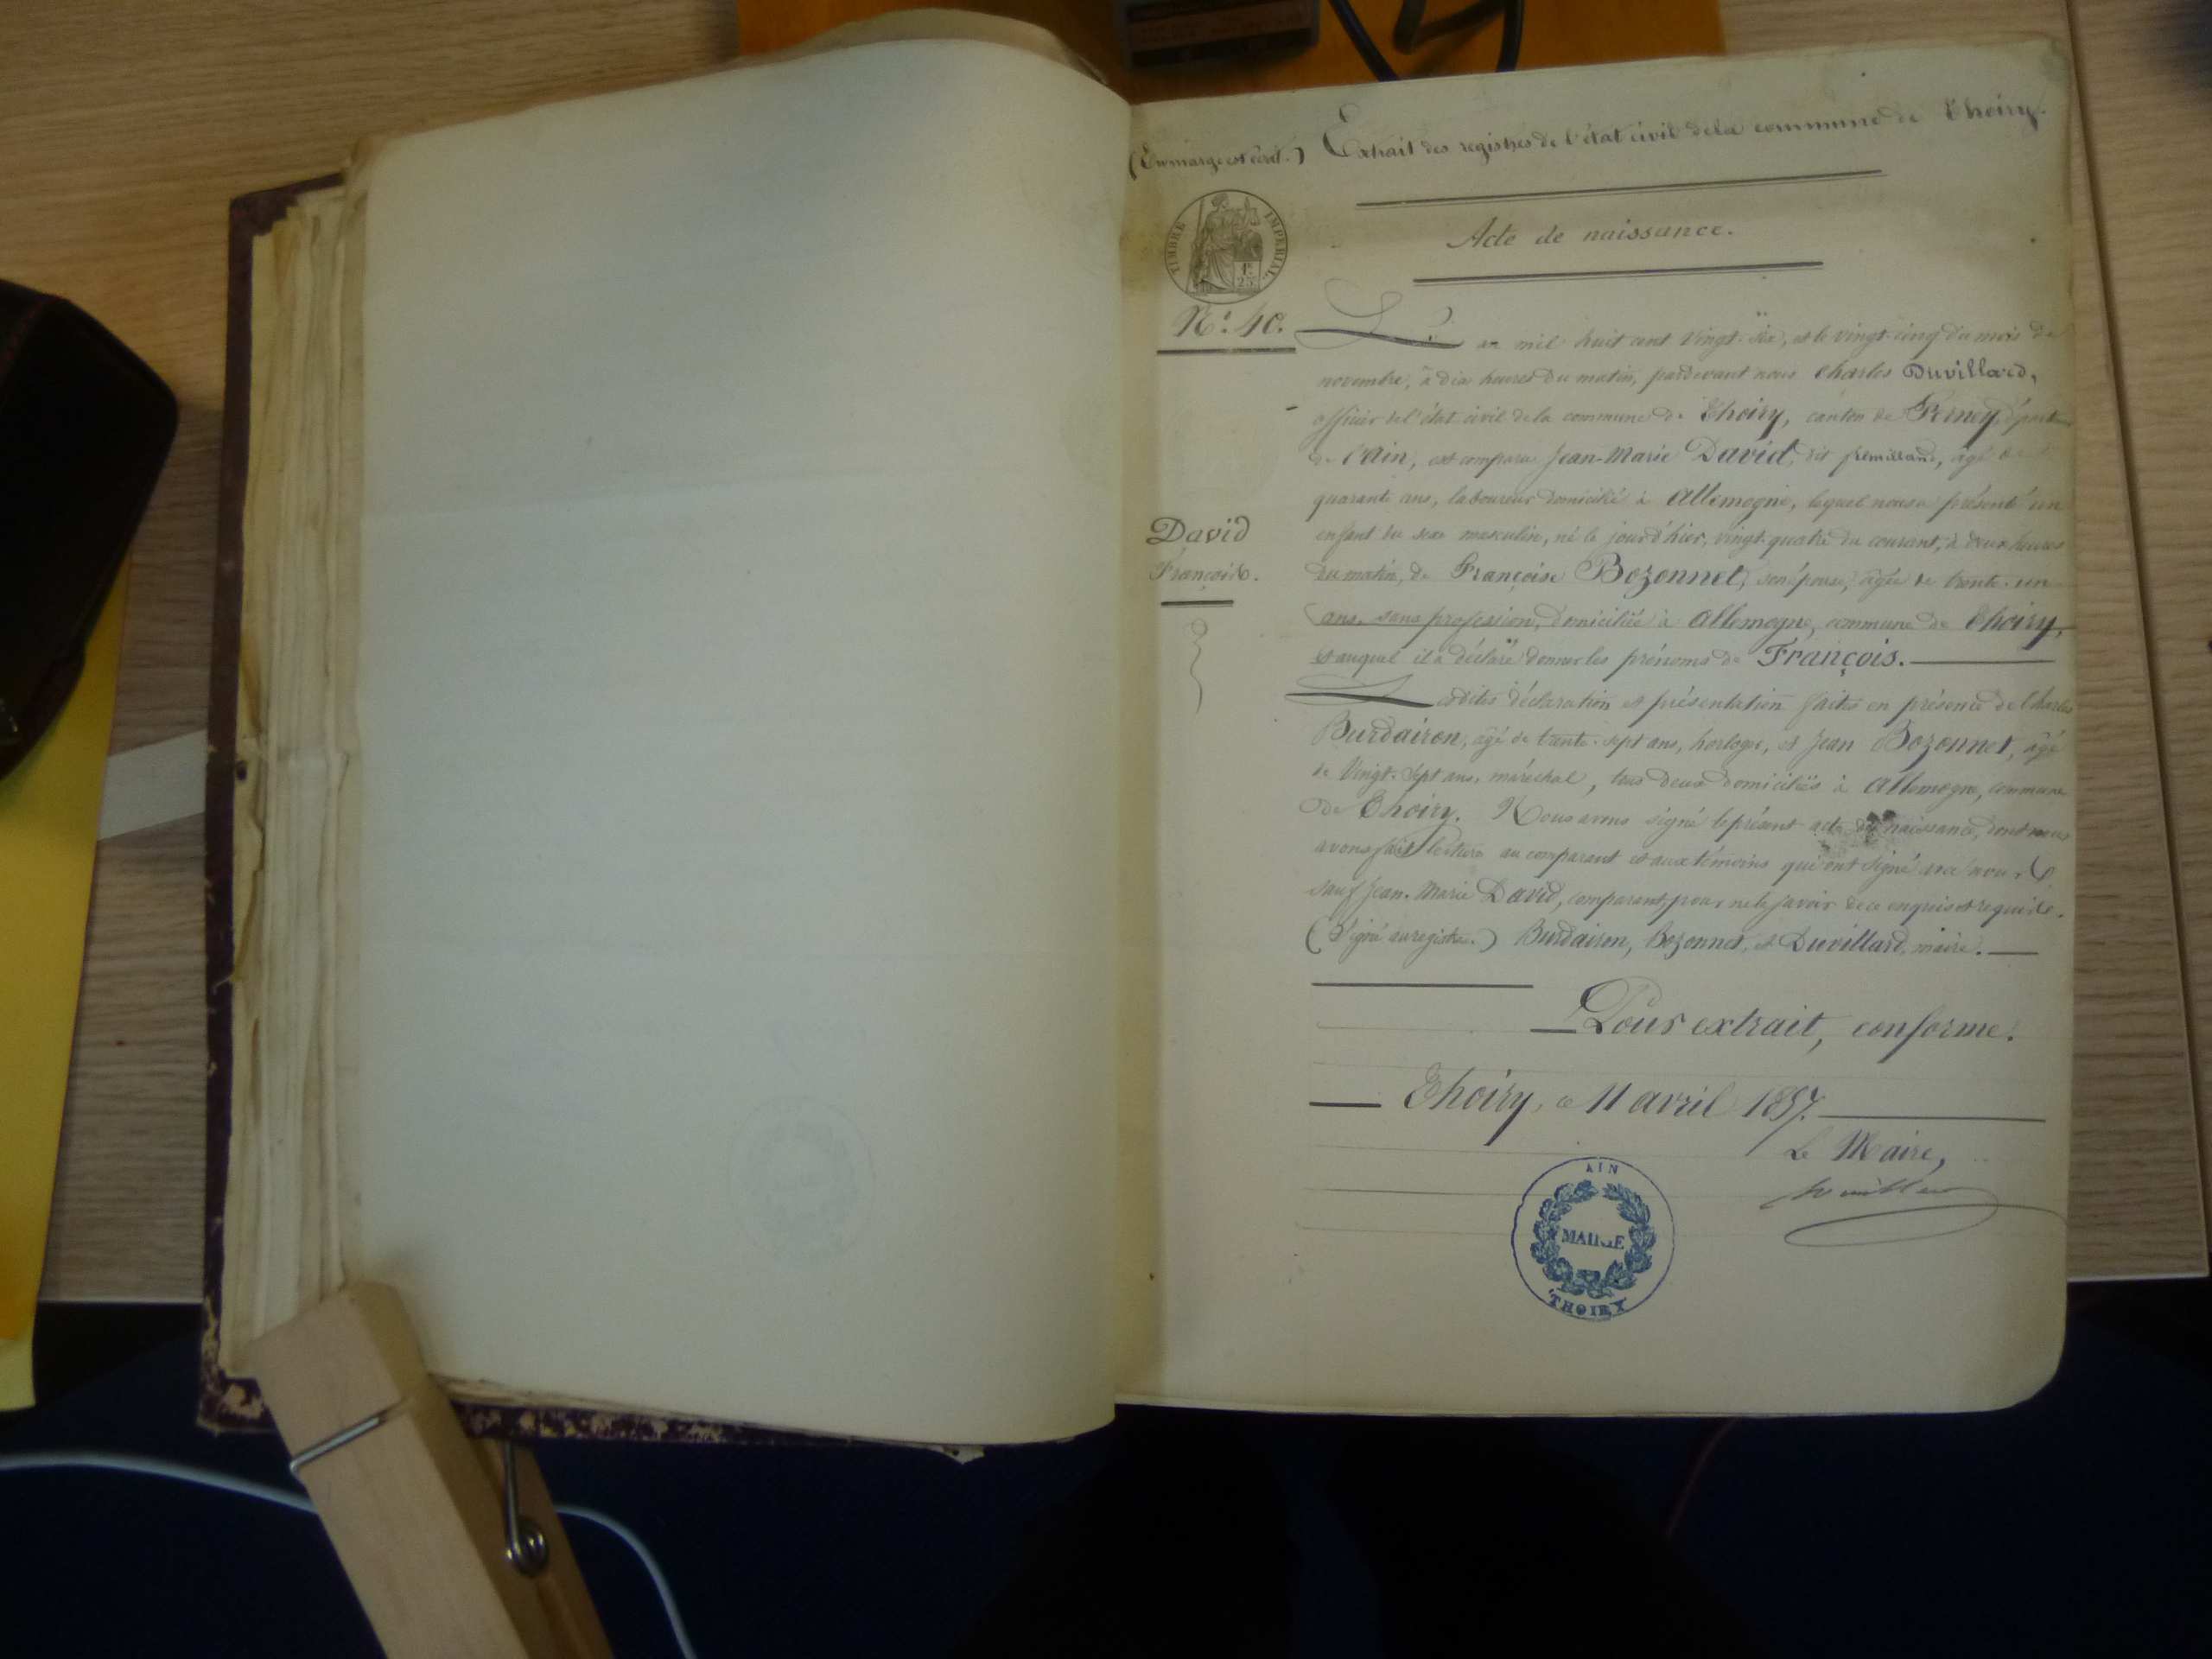 (En marge est écrit.) Extrait des registres de l'état civil de la commune de Thoiry.
Acte de naissance.
TIMBRE IMPÉRIAL
1F
25c
N° 40.
L'an mil huit cent vingt-six, et le vingt-cinq du mois de
novembre, à dix heures du matin, pardevant nous Charles Duvillard,
officier de l'état civil de la commune de Thoiry, canton de Ferney, départ
de l'Ain, est comparu Jean-Marie David, dit, âgé de
quarante ans, laboureur domicilié à Allemogne, lequel nous a présenté un
David
François.
enfant du sexe masculin, né le jour d'hier, vingt-quatre du courant, à deux heures
du matin, de Françoise Bozonnet, son épouse, âgée de trente-un
ans, sans profession, domiciliée à Allemogne, commune de Thoiry,
et auquel il a déclaré donner les prénoms de François.
Lesdites déclaration et présentation faites en présence de Charles
Burdairon, âgé de trente-sept ans, horloger, et Jean Bozonnet, âgé
de Vingt-sept ans, maréchal, tous deux domiciliés à Allemogne, commune
de Thoiry. Nous avons signé le présent acte de naissance, dont nous
avons fait lecture au comparant et aux témoins qui ont signé avec nous
sauf Jean-Marie David, comparant, pour ne le savoir de ce enquis et requis.
(Signé au registre.) Burdairon, Bozonnet, et Duvillard, maire.
Pour extrait, conforme.
Thoiry, ce 11 avril 1857.
Le Maire,
AIN
MAIRIE
THOIRY